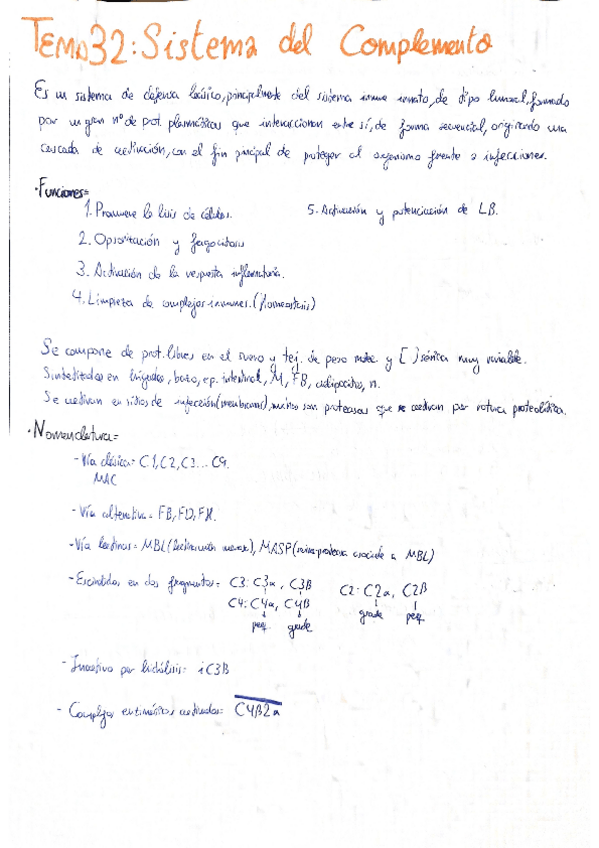 TEMA 32: Sistema del Complemento
Es un sistema de defensa básico, principalmente del sistema inmune innato, de tipo humoral, formado
por un gran nº de prot. plasmáticas que interaccionan entre sí, de forma secuencial, originando una
cascada de activación, con el fin principal de proteger al organismo frente a infecciones.
·Funciones=
1. Promueve la lisis de células.
5. Activación y potenciación de LB.
2. Opsonización y fagocitosis
3. Activación de la respuesta inflamatoria.
4. Limpieza de complejos inmunes. (homeostasis)
Se compone de prot. libres en el suero y tej. de peso molec. y [ ] sérica muy variable.
Sintetizadas en hígado, bazo, ep. intestinal, M, FB, adipocitos, n.
Se activan en sitios de infección (membranas), son proteasas que se activan por rotura proteolítica.
·Nomenclatura=
- Vía clásica= C1, C2, C3... C9.
MAC
- Vía alternativa= FB, FD, FH.
- Vía lectinas= MBL (lectina unión manosa), MASP (serina-proteasa asociada a MBL)
- Escindidas en dos fragmentos= C3: C3a, C3B C2: C2a, C2B
C4: C4a, C4B grande peq.
peq. grande
- Inactivo por hidrólisis= iC3B
- Complejos enzimáticos activados= C4B2a